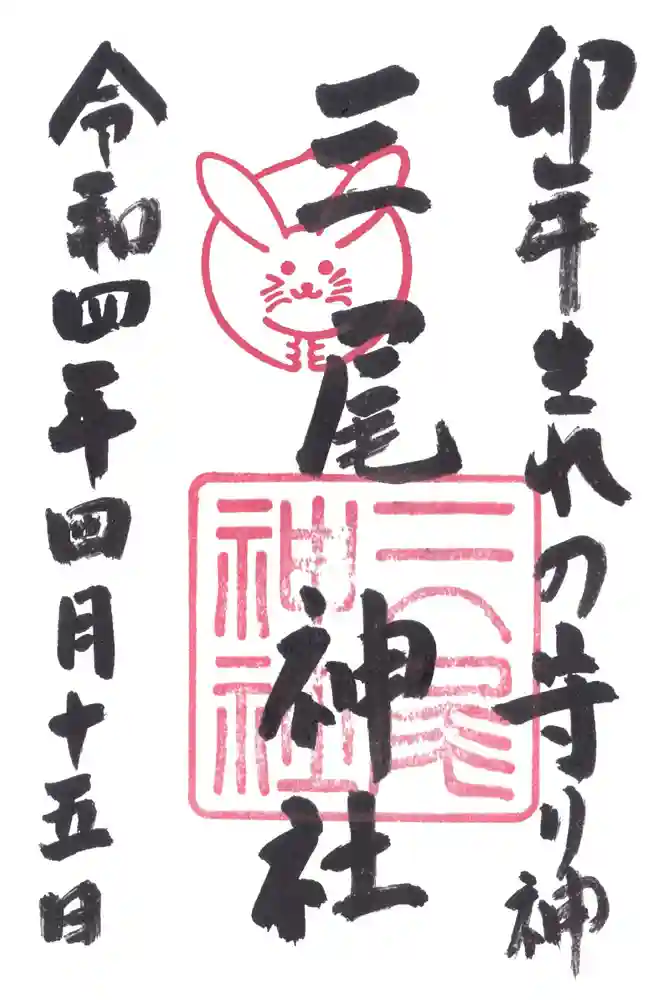 卯年生れの守り神
三尾神社
三尾神社
令和四年四月十五日